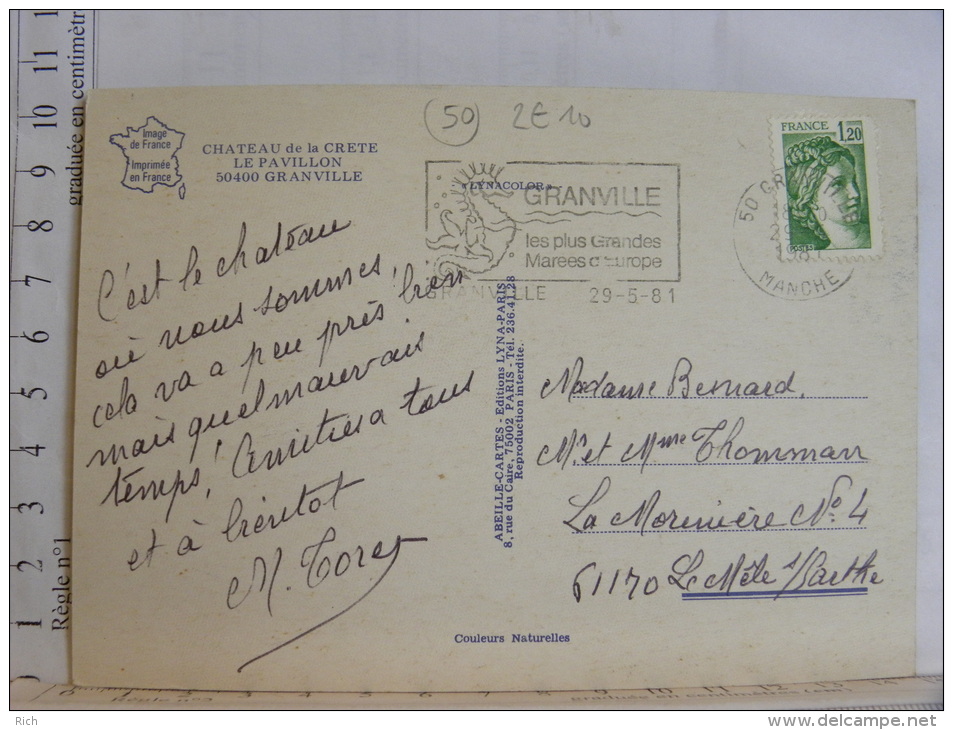 (50) 2€10
Image
de France
Imprimée
en France
CHATEAU de la CRETE
LE PAVILLON
50400 GRANVILLE
"LYNACOLOR"
GRANVILLE
les plus Grandes
Marees d'Europe
GRANVILLE 29-5-81
FRANCE 1,20
MANCHE
C'est le chateau
où nous sommes,
cela va a peu près bien
mais quel mauvais
temps! Amitiés a tous
et à bientot
M. Toret
ABEILLE-CARTES - Editions LYNA-PARIS
8, rue du Caire, 75002 PARIS - Tél. 236.41.28
Reproduction interdite.
Madame Besnard.
Mr et Mme Thommann
La Morinière No 4
61170 Le Mêle s/Sarthe
Couleurs Naturelles
graduée en centimètr
Règle n°1
11
10
9
8
7
6
5
4
3
2
1
Rich
www.delcampe.net